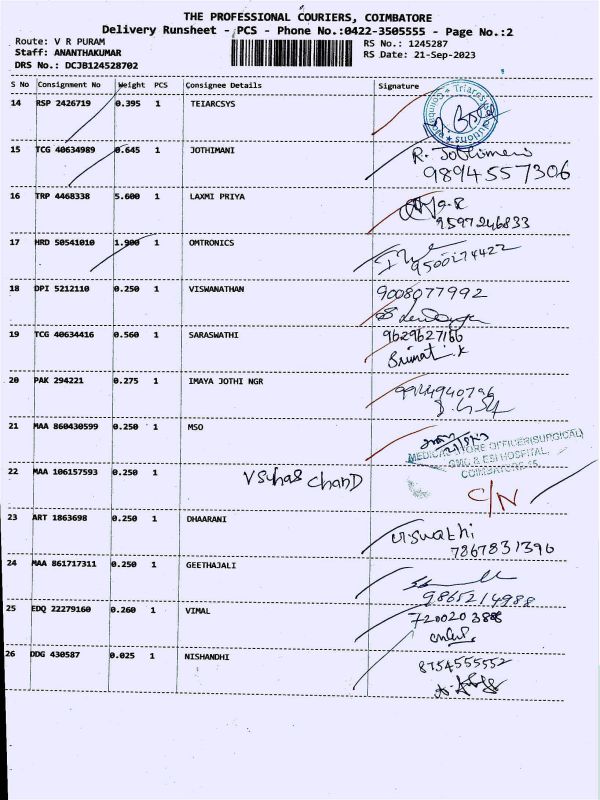 THE PROFESSIONAL COURIERS, COIMBATORE
Delivery Runsheet - PCS - Phone No.:0422-3505555 - Page No.:2
Route: V R PURAM
RS No.: 1245287
Staff: ANANTHAKUMAR
RS Date: 21-Sep-2023
DRS No.: DCJB124528702
S No Consignment No Weight PCS Consignee Details Signature
14 RSP 2426719 0.395 1 TEIARCSYS
15 TCG 40634989 0.645 1 JOTHIMANI R. Jothimani
9894557306
16 TRP 4468338 5.600 1 LAXMI PRIYA
9597246833
17 HRD 50541010 1.900 1 OMTRONICS
9500274422
18 DPI 5212110 0.250 1 VISWANATHAN 9008077992
19 TCG 40634416 0.560 1 SARASWATHI 9629627166
Srimati.K
20 PAK 294221 0.275 1 IMAYA JOTHI NGR 9944940796
21 MAA 860430599 0.250 1 MSO
MEDICAL STORE OFFICER(SURGICAL)
GMC & ESI HOSPITAL
COIMBATORE-15
22 MAA 106157593 0.250 1 VSuhas chanD C/N
23 ART 1863698 0.250 1 DHAARANI Viswathi
7867831396
24 MAA 861717311 0.250 1 GEETHAJALI
9865214988
25 EDQ 22279160 0.260 1 VIMAL 720020 3888
26 DDG 430587 0.025 1 NISHANDHI 8754555552